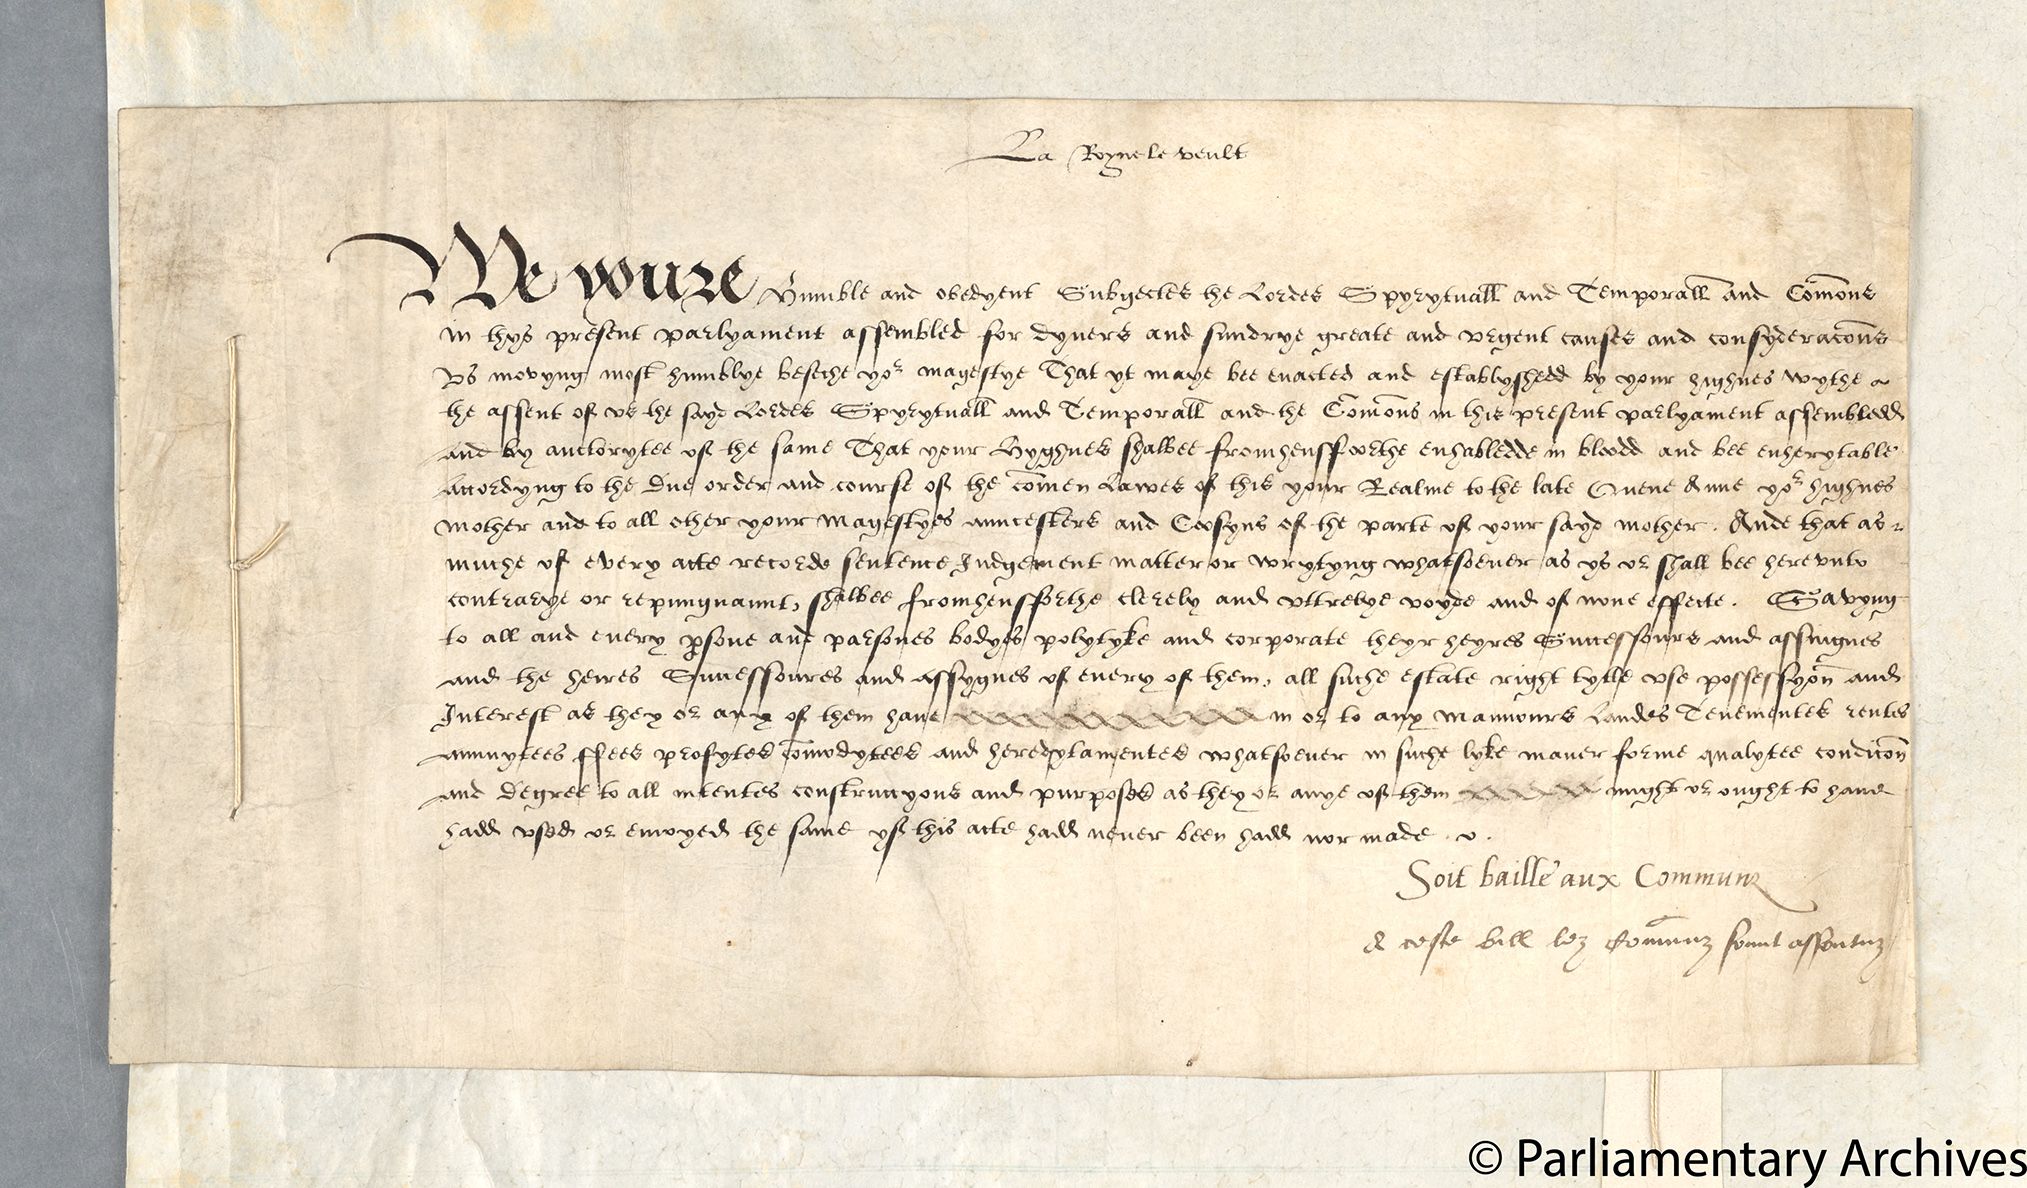 La Royne le veult
We youre humble and obedyent Subyectes the Lordes Spyrytuall and Temporall and Comons
in thys present parlyament assembled for dyuers and sundrye greate and vrgent causes and consyderacons
Vs movyng most humblye beseche yor magestye That yt maye bee enacted and establyshedd by your highnes wythe
the assent of vs the sayd Lordes Spyrytuall and Temporall and the Comons in this present parlyament assembledd
and by auctorytee of the same That your hyghnes shalbee fromhensffoorthe enhabledde in bloodd and bee enherytable
Accordyng to the due order and course of the comen Lawes of this your Realme to the late Quene Anne yor highnes
mother and to all other your Magestyes auncesters and Coosyns of the parte of your sayd mother . Ande that as
muche of every acte recorde sentence Iudgement matter or wrytyng whatsoeuer as ys or shall bee herevnto
contrarye or repungnaunt, shalbee fromhensfforthe clerely and vttrelye voyde and of none effecte . Savyng
to all and euery psone and parsones bodyes polytyke and corporate theyr heyres Successours and assingnes
and the heires Successoures and assygnes of euery of them, all suche estate right tytle vse possessyon and
Interest as they or any of them haue in or to any mannours Landes Tenementes rentes
annuytees ffees profytes comodytees and heredytamentes whatsoeuer in suche lyke maner forme qualytee condicon
and degree to all intentes construccyons and purposes as they or anye of them might or ought to haue
hadd vsed or enioyed the same yf this acte hadd neuer been hadd nor made .
Soit baille aux Communz
A ceste bill lez Comunz sount assentuz
© Parliamentary Archives